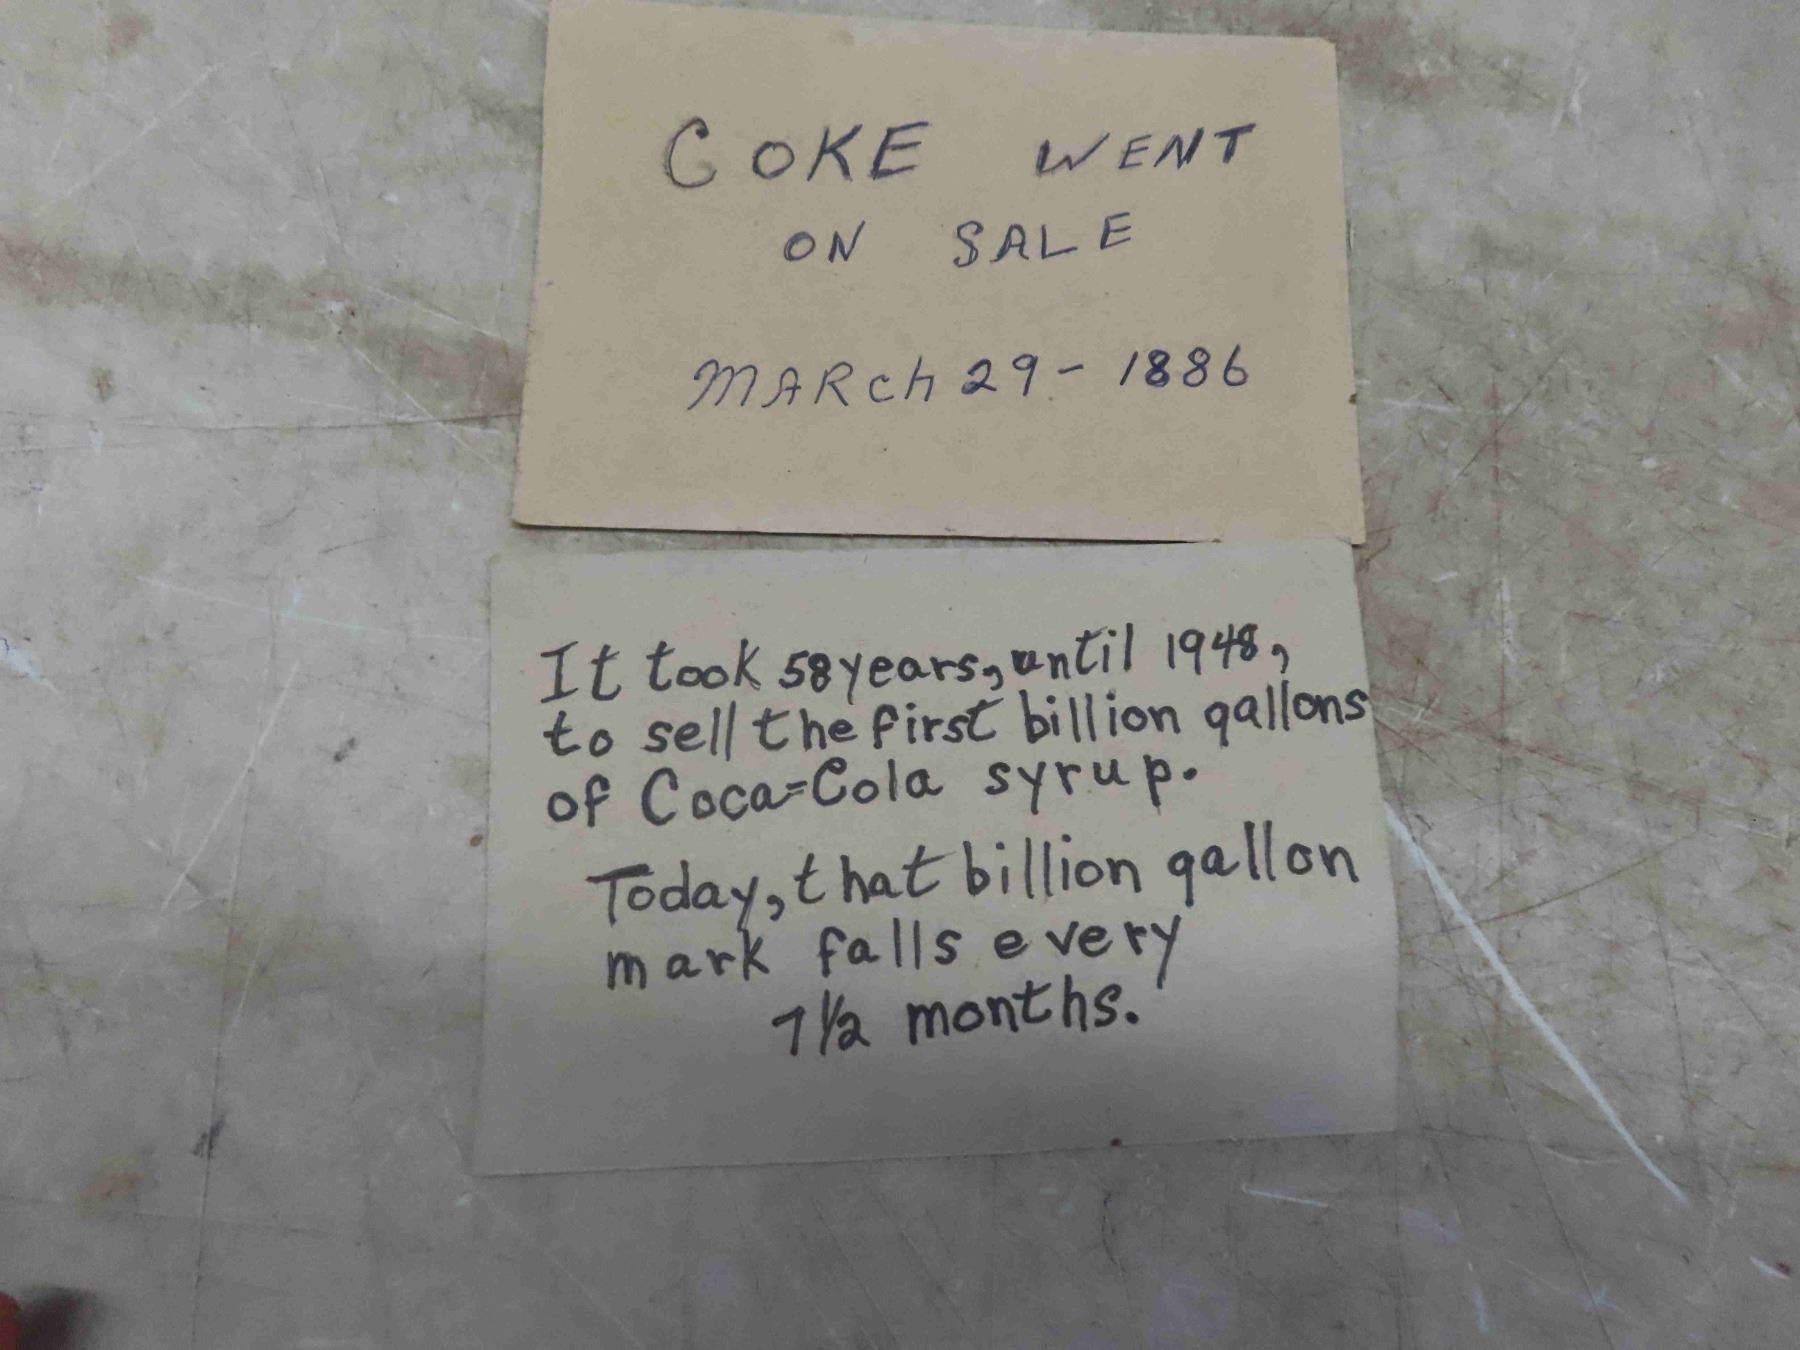 COKE WENT
ON SALE
MARCh 29 - 1886
It took 58 years, until 1948,
to sell the first billion gallons
of Coca=Cola syrup.
Today, that billion gallon
mark falls every
7 1/2 months.